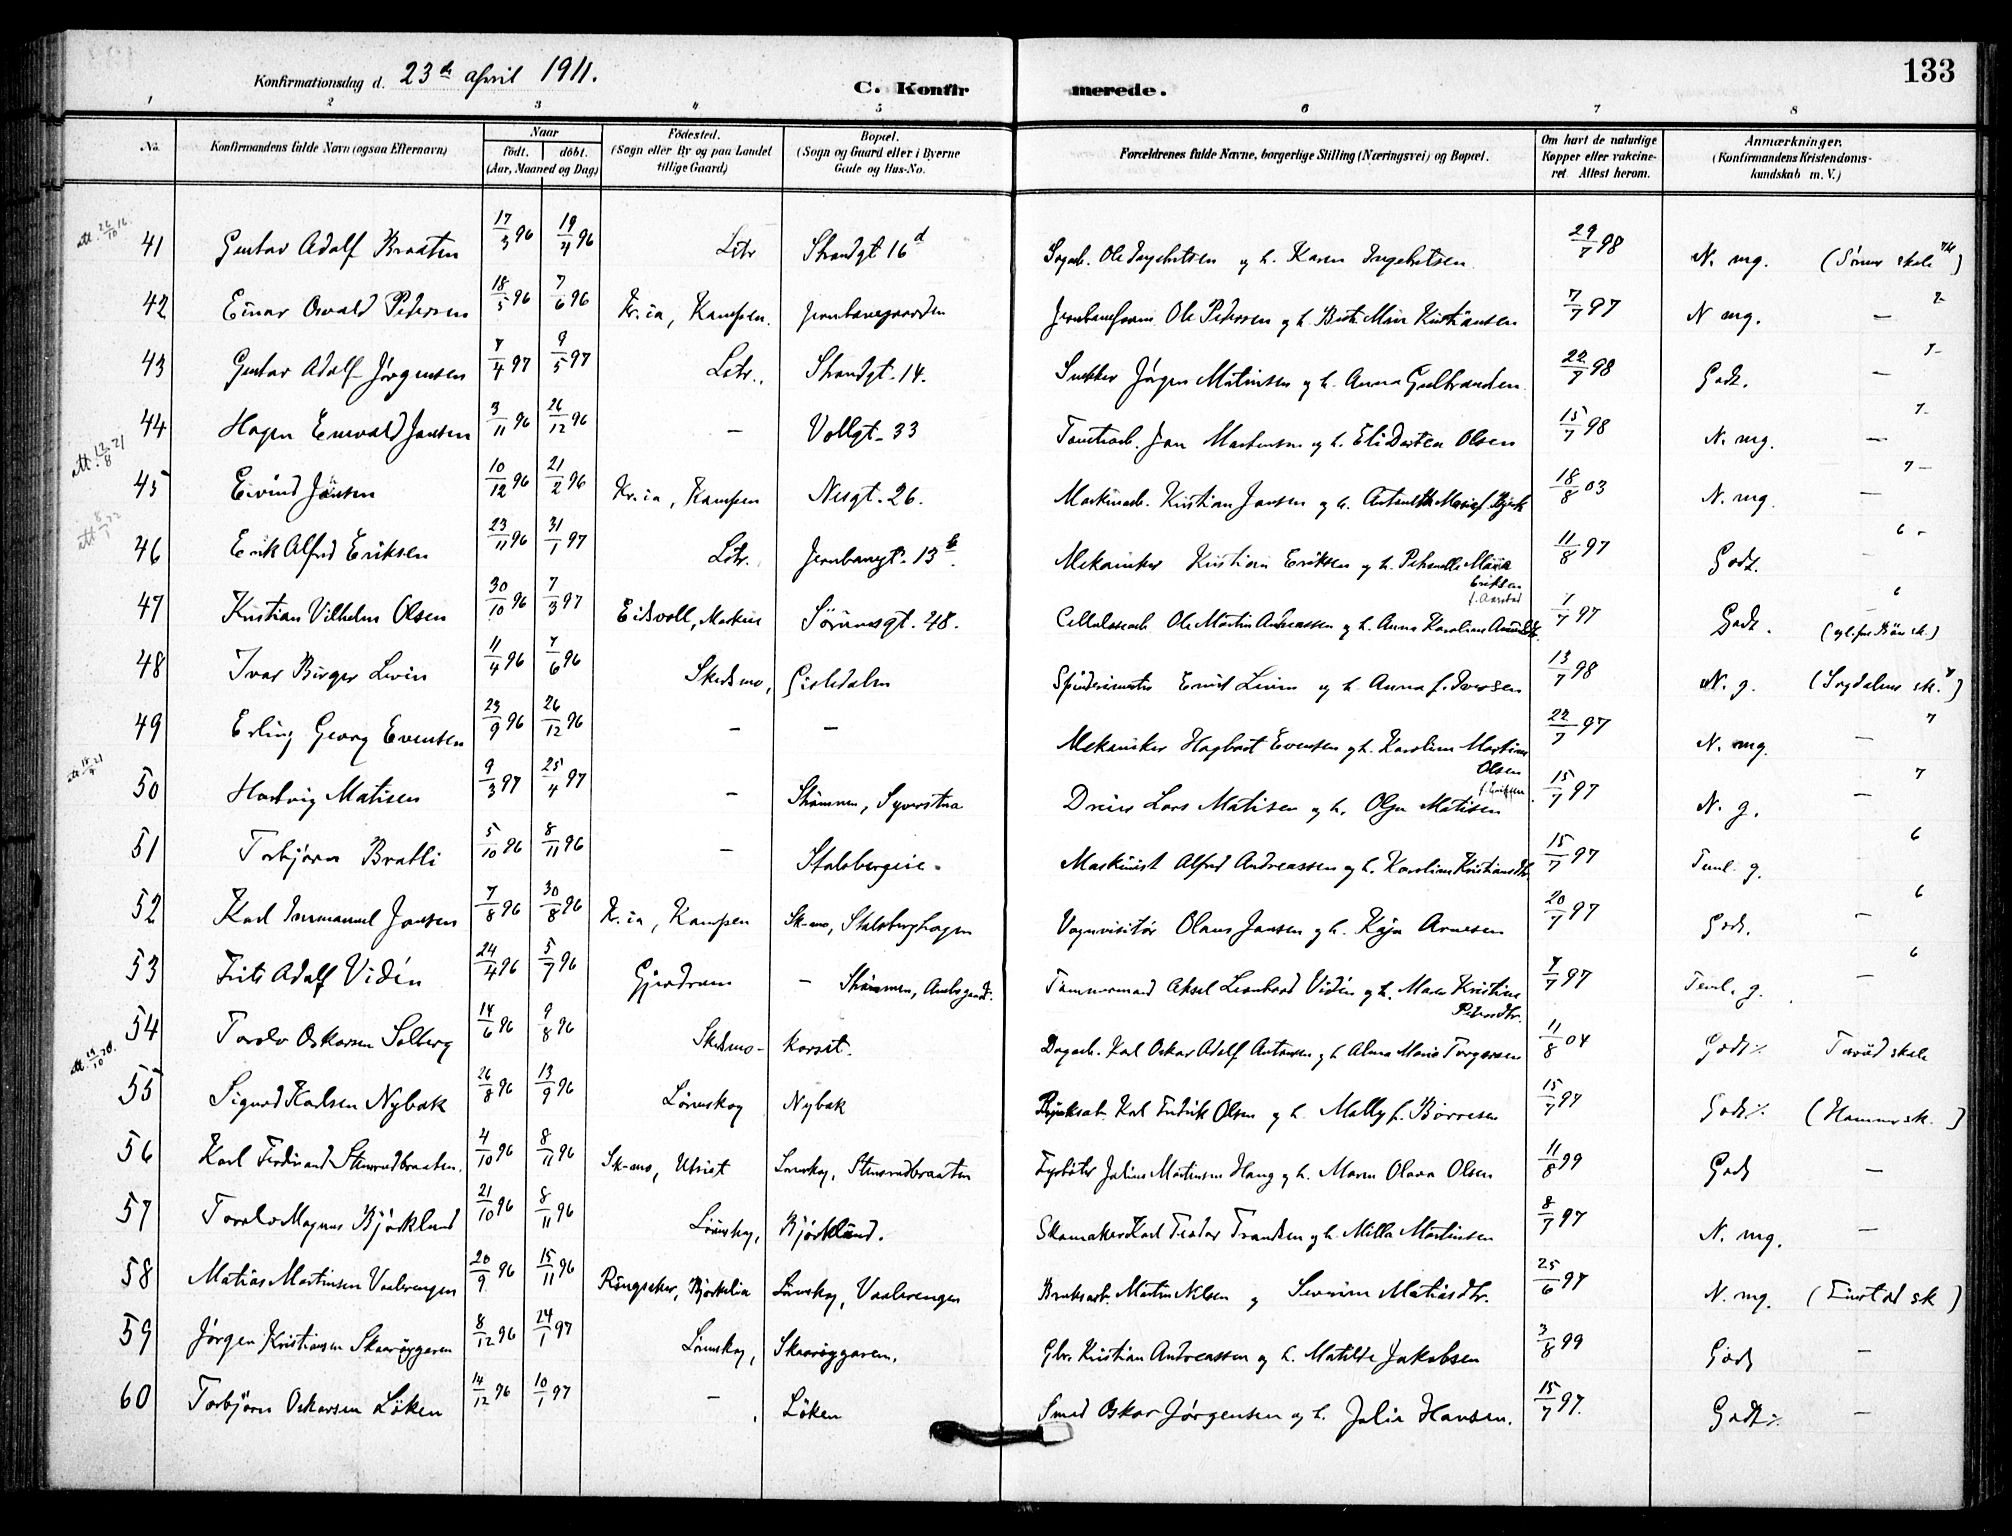 133
Konfirmationsdag d. 23de april 1911.
C. Konfirmerede.
1 2 3 " 5 6 7 8
No. | Konfirmandens fulde Navn (ogsaa Efternavn) | Naar født. døbt. (Aar, Maaned og Dag) | Fødested. (Sogn eller By og paa Landet tillige Gaard) | Bopæl. (Sogn og Gaard eller i Byerne Gade og Hus-No. | Forældrenes fulde Navne, borgerlige Stilling (Næringsvei) og Bopæl. | Om havt de naturlige Kopper eller vaccineret. Attest herom. | Anmærkninger. (Konfirmandens Kristendomskundskab m. V.)
41 Gustav Adolf Braaten 17/3 96 19/4 96 Lstr Strandgt 16d Ole Ingebretsen og h. Karen Ingebretsen 29/7 98 N. mg.
42 Einar Osvald Pedersen 18/5 96 7/6 96 Kr.ia, Kampen. Jernbanegaarden Ole Pedersen og h. 7/7 97 N mg. —
43 Gustav Adolf Jørgensen 7/4 97 9/5 97 Lstr. Strandgt. 14. Snekker Jørgen Martinsen og h. Anna Gulbrandsen 22/7 98 Godt. —
44 Hagen Enevald Jansen 3/11 96 26/12 96 — Vollgt. 33 Tomtearb. Jan Martinsen og h. Eli Olsen 15/7 98 N. mg. —
45 Eivind Jansen 10/12 96 21/2 96 Kr.ia, Kampen Nesgt. 26. Maskinarb. Kristian Jansen og h. 18/8 03 N. mg. —
46 Erik Alfred Eriksen 23/11 96 31/1 97 Lstr. Jernbanegt. 13b. Mekaniker Kristian Eriksen og h. Petronelle Maria Eriksen 11/8 97 Godt.
47 Kristian Vilhelm Olsen 30/10 96 7/3 97 Eidsvoll, Sørumsgt. 48. Cellulosearb. Ole Martin Andreassen og h. Anna Karoline 1/7 97 Godt.
48 Ivar Birger Levin 11/4 96 7/6 96 Skedsmo, Gisledalen Ernst Levin og h. Anna f. Iversen 13/7 98 N. g.
49 Erling Georg Evensen 23/9 96 26/12 96 — — Mekaniker Hagbart Evensen og h. Karoline Martine Olsen 22/7 97 N. mg. —
50 Hartvig Matisen 9/3 97 25/4 97 — Strømmen, Lars Matisen og h. Olga Matisen 15/7 97 N. g. —
51 Torbjørn Bratli 5/10 96 8/11 96 — Stalsbergeie. Maskinist Alfred Andreassen og h. Karoline Kristiansdtr. 15/7 97 Teml. g.
52 Karl Immanuel Jansen 7/8 96 30/8 96 Kr.ia, Kampen Sk-mo, Stalsberghagen Vognvisitør Olaus Jansen og h. Kaja Arnesen 20/7 97 Godt. —
53 Frits Adolf Vidén 24/4 96 5/7 96 Gjerdrum — Strømmen, Tømmermand Aksel Leonhard Vidén og h. Maren Kristine Pedersdtr. 7/7 97 Teml. g. —
54 Torolv Oskarsen Solberg 14/6 96 9/8 96 Skedsmo- korset. Dagarb. Karl Oskar Adolf Antonsen og h. Alma Marie Torgersen 11/8 04 Godt skole
55 Sigurd Karlsen Nybak 26/8 96 13/9 96 Lørenskog Nybak Karl Fredrik Olsen og h. Mally f. Børresen 15/7 97 Godt (Hammer sk.)
56 Karl Ferdinand Stensrudbraaten. 4/10 96 8/11 96 Sk-mo, Lørenskog, Stensrudbraaten Fyrbøter Julius Martinsen Haug og h. Maren Olava Olsen 11/8 99 Godt —
57 Torolv Magnus Bjørklund 21/10 96 8/11 96 Lørenskog, Bjørklund. Skomaker Karl Teodor Frandsen og h. Milla Martinsen 8/7 97 N. mg. —
58 Matias Martinsen Vaalerengen 20/9 96 15/11 96 Ringsaker, Bjørkelia Lørenskog, Vaalerengen Bruksarb. Martin Nilsen og Severine Matiasdtr. 25/6 97 N. mg. (Finstad sk)
59 Jørgen Kristiansen Skaarøygaren 8/12 96 24/1 97 Lørenskog, Skaarøygaren. Gbr. Kristian Andreassen og h. Matilde Jakobsen 3/8 99 Godt —
60 Torbjørn Oskarsen Løken 14/12 96 10/1 97 — Løken Smed Oskar Jørgensen og h. Julie Hansen. 15/7 97. Godt —